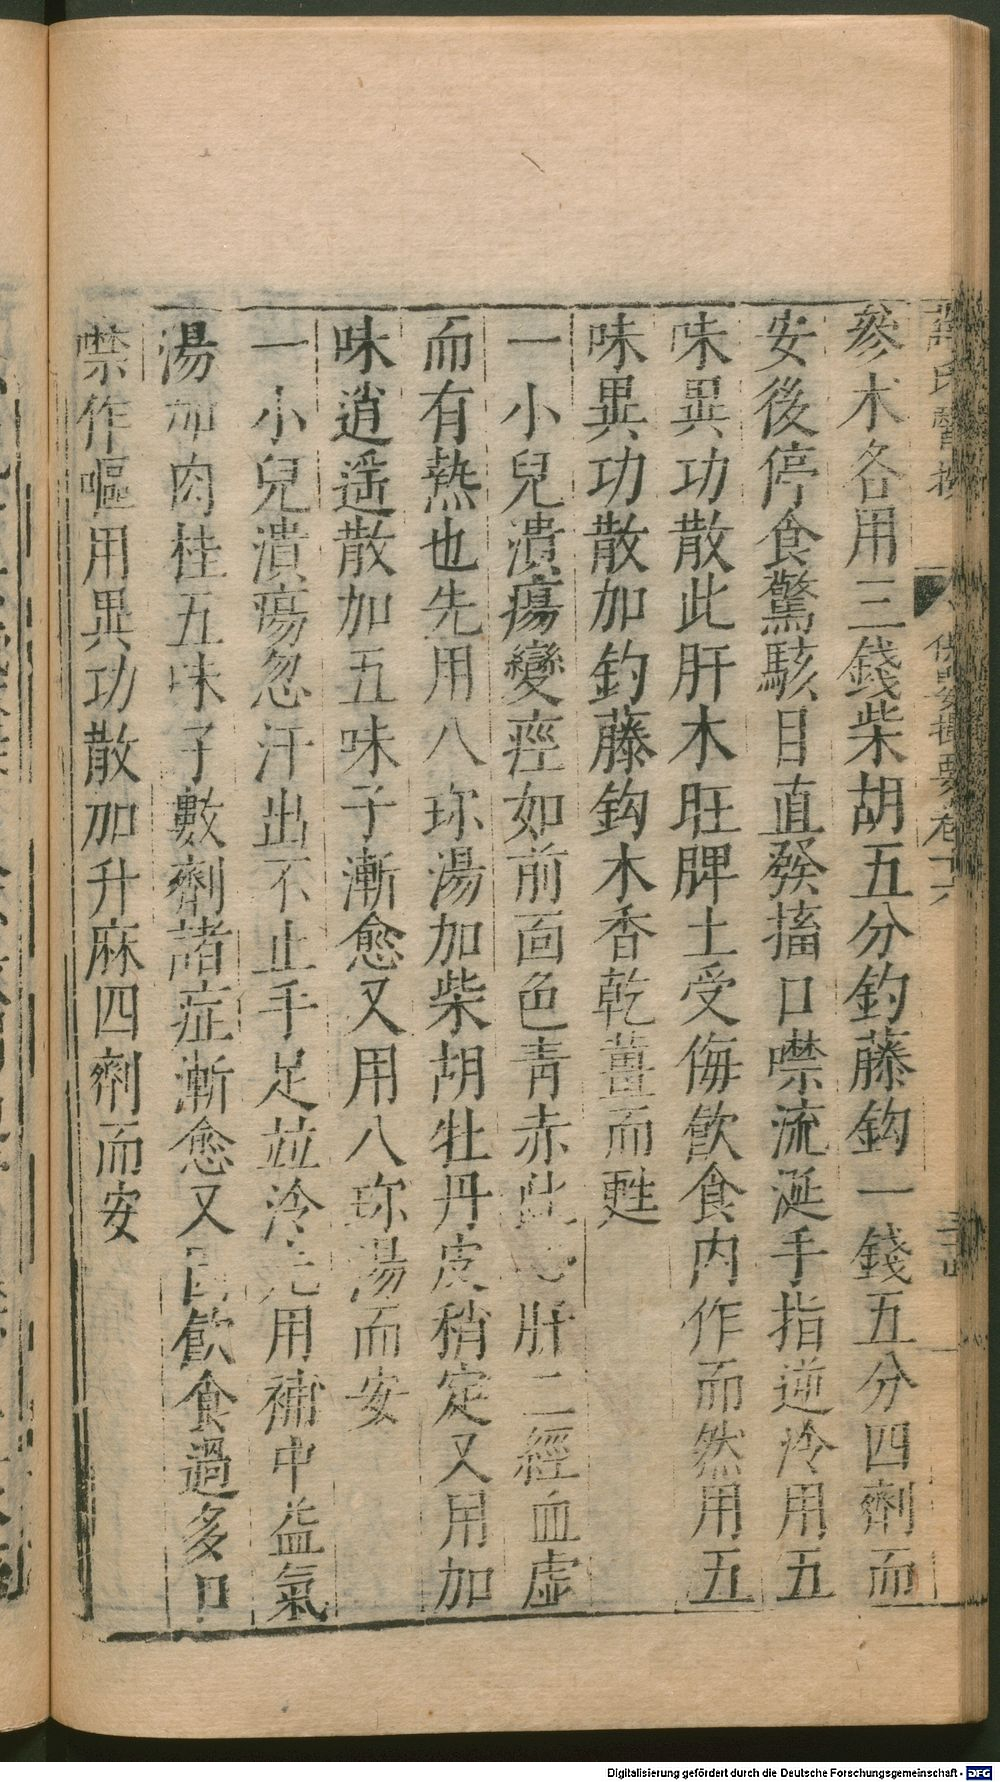 參木各用三錢柴胡五分釣藤鈎一錢五分四劑而
安後停食驚駭目直發搐口噤流涎手指逆冷用五
味異功散此肝木旺脾土受侮飲食内作而然用五
味異功散加釣藤鈎木香乾薑而甦
一小兒潰瘍變痙如前面色青赤此 肝二經血虛
而有熱也先用八珍湯加柴胡牡丹皮稍定又用加
味逍遥散加五味子漸愈又用八珍湯而安
一小兒潰瘍忽汗出不止手足並冷先用補中益氣
湯加肉桂五味子數劑諸症漸愈又因飲食過多口
噤作嘔用異功散加升麻四劑而安
氏醫按 保嬰撮要卷十六
Digitalisierung gefördert durch die Deutsche Forschungsgemeinschaft - DFG